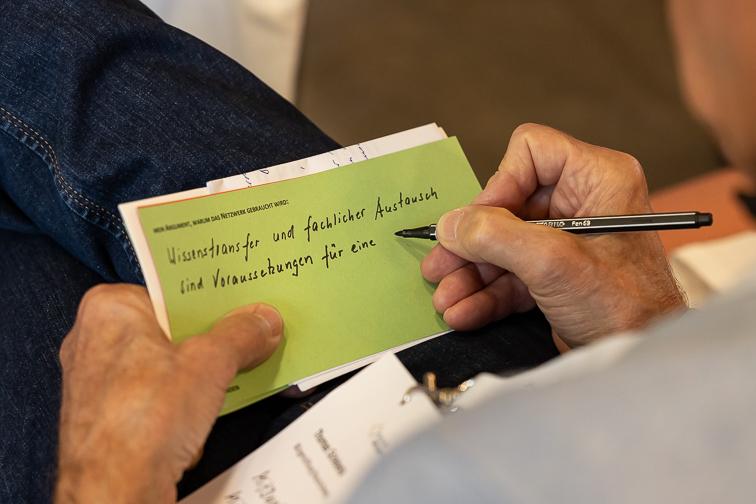 MEIN ARGUMENT, WARUM DAS NETZWERK GEBRAUCHT WIRD:
Wissenstransfer und fachlicher Austausch
sind Voraussetzungen für eine
STABILO Pen 68